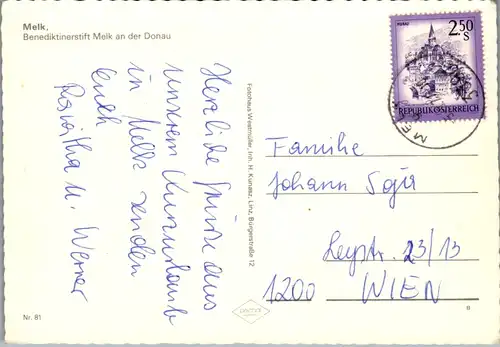 Melk,
Benediktinerstift Melk an der Donau
Herzliche Grüße aus
unserem Kurzurlaub
in Melk senden
Euch
Roswitha u. Werner
Fotohaus Westmüller, Inh. H. Kunaaz, Linz, Bürgerstraße 12
MURAU
2.50
S
REPUBLIK ÖSTERREICH
Familie
Johann
23/13
1200 WIEN
Nr. 81